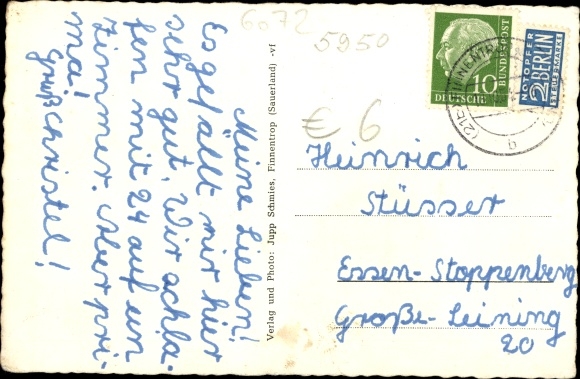 6072
5950
€ 6
Meine Lieben!
Es gefällt mir hier
sehr gut. Wir schla-
fen mit 24 auf ein
Zimmer. Aber pri-
ma!
Gruß Christel!
Verlag und Photo: Jupp Schmies, Finnentrop (Sauerland) -vf
10
DEUTSCHE
BUNDESPOST
NOTOPFER
2 BERLIN
STEUERMARKE
Heinrich
Stüsser
Essen-Stoppenberg
Große-Leining
20